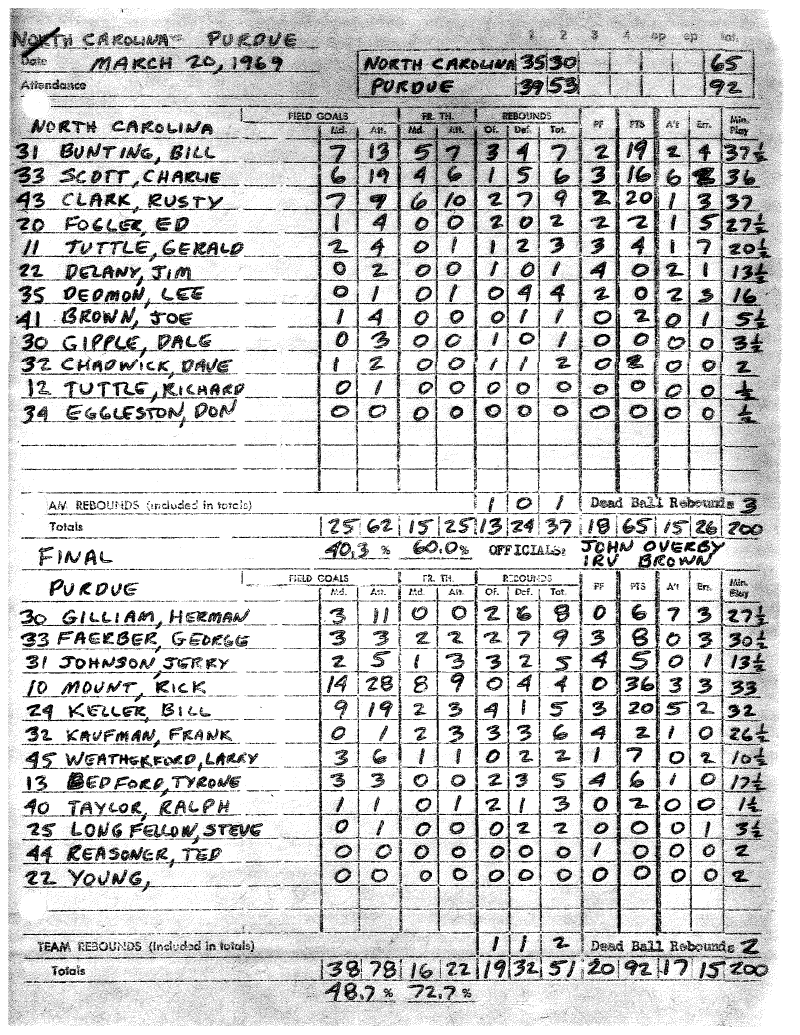 NORTH CAROLINA - PURDUE 1 2 3 4 op op tot.
Date MARCH 20, 1969 NORTH CAROLINA 35 30 65
Attendance PURDUE 39 53 92
FIELD GOALS FR. TH. REBOUNDS
NORTH CAROLINA Md. Att. Md. Att. Of. Def. Tot. PF PTS A's Err. Min. Play
31 BUNTING, BILL 7 13 5 7 3 4 7 2 19 2 4 37½
33 SCOTT, CHARLIE 6 19 4 6 1 5 6 3 16 6 2 36
43 CLARK, RUSTY 7 9 6 10 2 7 9 2 20 1 3 37
20 FOGLER, ED 1 4 0 0 2 0 2 2 2 1 5 27½
11 TUTTLE, GERALD 2 4 0 1 1 2 3 3 4 1 7 20½
22 DELANY, JIM 0 2 0 0 1 0 1 4 0 2 1 13½
35 DEDMON, LEE 0 1 0 1 0 4 4 2 0 2 3 16
41 BROWN, JOE 1 4 0 0 0 1 1 0 2 0 1 5½
30 GIPPLE, DALE 0 3 0 0 1 0 1 0 0 0 0 3½
32 CHADWICK, DAVE 1 2 0 0 1 1 2 0 2 0 0 2
12 TUTTLE, RICHARD 0 1 0 0 0 0 0 0 0 0 0 ½
34 EGGLESTON, DON 0 0 0 0 0 0 0 0 0 0 0 ½
AM REBOUNDS (included in totals) 1 0 1 Dead Ball Rebounds 3
Totals 25 62 15 25 13 24 37 18 65 15 26 200
FINAL 40.3 % 60.0 % OFFICIALS: JOHN OVERBY
IRV BROWN
FIELD GOALS FR. TH. REBOUNDS
PURDUE Md. Att. Md. Att. Of. Def. Tot. PF PTS A's Err. Min. Play
30 GILLIAM, HERMAN 3 11 0 0 2 6 8 0 6 7 3 27½
33 FAERBER, GEORGE 3 3 2 2 2 7 9 3 8 0 3 30½
31 JOHNSON, JERRY 2 5 1 3 3 2 5 4 5 0 1 13½
10 MOUNT, RICK 14 28 8 9 0 4 4 0 36 3 3 33
24 KELLER, BILL 9 19 2 3 4 1 5 3 20 5 2 32
32 KAUFMAN, FRANK 0 1 2 3 3 3 6 4 2 1 0 26½
45 WEATHERFORD, LARRY 3 6 1 1 0 2 2 1 7 0 2 10½
13 BEDFORD, TYRONE 3 3 0 0 2 3 5 4 6 1 0 17½
40 TAYLOR, RALPH 1 1 0 1 2 1 3 0 2 0 0 1½
25 LONG FELLOW, STEVE 0 1 0 0 0 2 2 0 0 0 1 3½
44 REASONER, TED 0 0 0 0 0 0 0 1 0 0 0 2
22 YOUNG, 0 0 0 0 0 0 0 0 0 0 0 2
TEAM REBOUNDS (Included in totals) 1 1 2 Dead Ball Rebounds 2
Totals 38 78 16 22 19 32 51 20 92 17 15 200
48.7 % 72.7 %